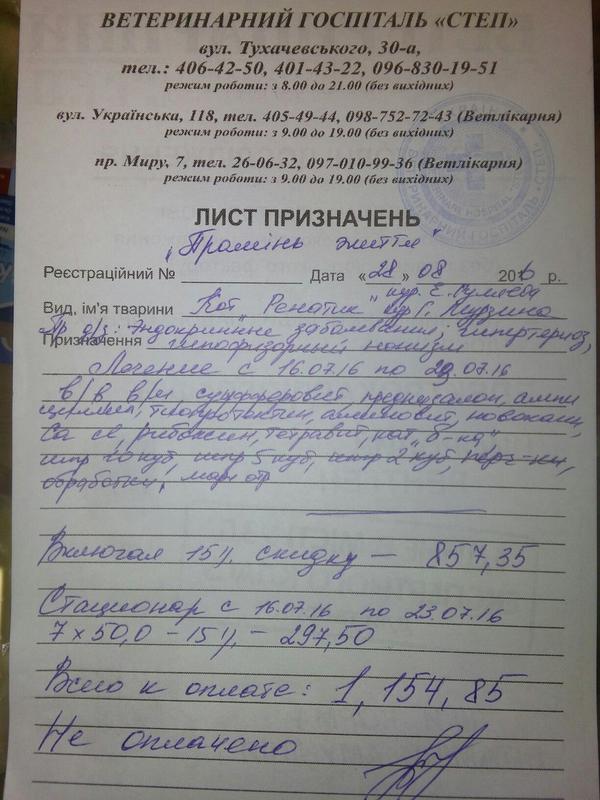 ВЕТЕРИНАРНИЙ ГОСПІТАЛЬ «СТЕП»
вул. Тухачевського, 30-а,
тел.: 406-42-50, 401-43-22, 096-830-19-51
режим роботи: з 8.00 до 21.00 (без вихідних)
вул. Українська, 118, тел. 405-49-44, 098-752-72-43 (Ветлікарня)
режим роботи: з 9.00 до 19.00 (без вихідних)
пр. Миру, 7, тел. 26-06-32, 097-010-99-36 (Ветлікарня)
режим роботи: з 9.00 до 19.00 (без вихідних)
ЛИСТ ПРИЗНАЧЕНЬ
"Промінь життя"
Реєстраційний № Дата «28» 08 2016 р.
кур. Е.
Вид, ім'я тварини Кот "Ренатик" кур Г.
Пр д/з: Эндокринные заболевания; гипертериоз,
Призначення гипофизарный нанизм
Лечение с 16.07.16 по 23.07.16
в/в в/м, преднизолон, ампи
циллин, новокаин,
Са рибоксин, тетравит, кат "б-ка"
шпр 10 куб, шпр 5 куб, шпр 2 куб,
обработки,
Включая 15% скидку — 857,35
Стационар с 16.07.16 по 23.07.16
7 x 50,0 - 15% - 297,50
Всего к оплате: 1,154,85
Не оплачено